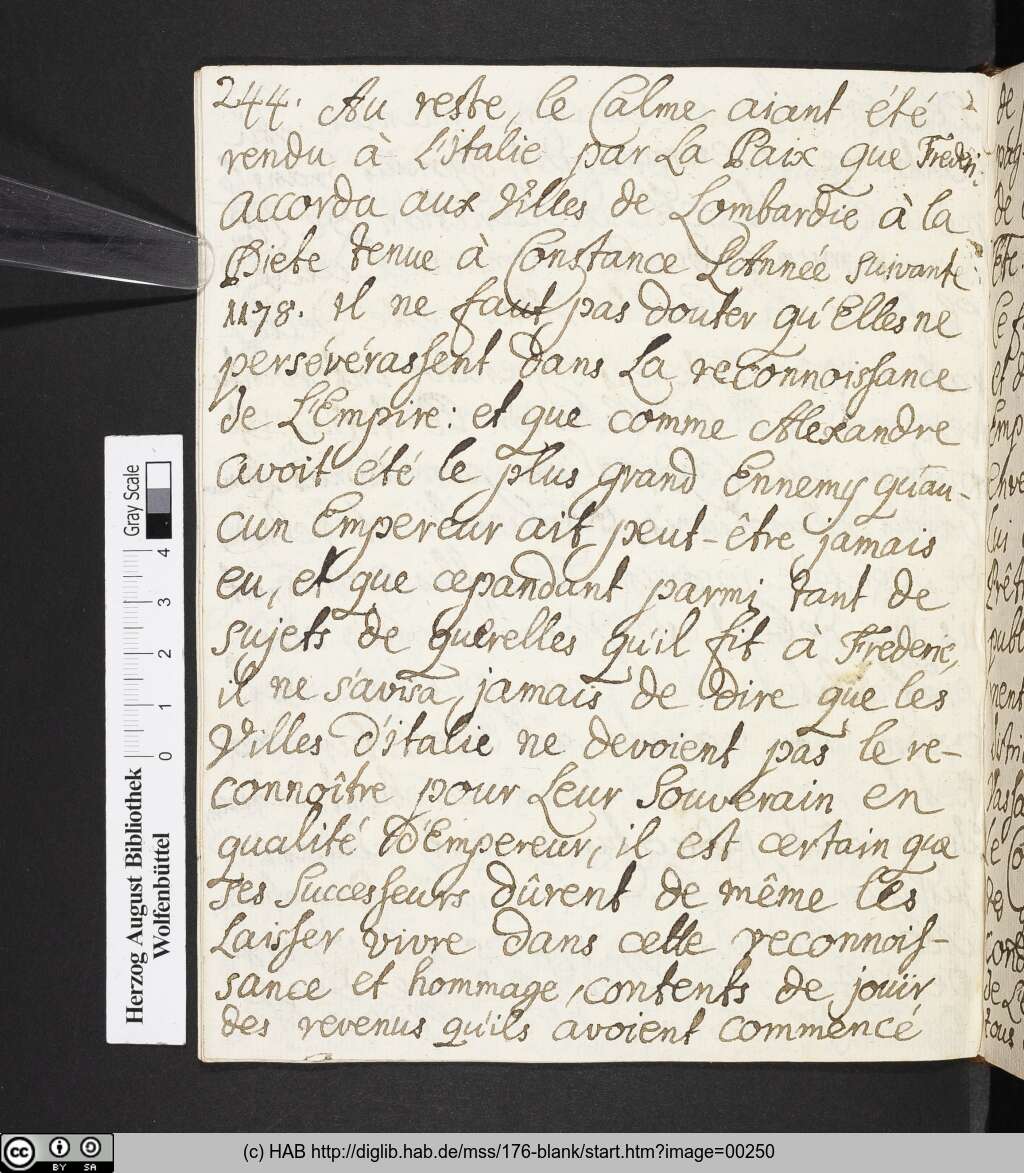 244. Au reste, le Calme aiant été
rendu à L'italie par La Paix que Frederic
accorda aux Villes de Lombardie à la
Diete tenue à Constance L'Année suivante
1178. Il ne faut pas douter qu'Elles ne
persévérassent dans La reconnoissance
de L'Empire: et que comme Alexandre
avoit été le plus grand Ennemy qu'au-
cun Empereur ait peut-être jamais
eu, et que cepandant parmi tant de
sujets de querelles qu'il fit à Frederic,
il ne s'avisa jamais de dire que les
Villes d'italie ne devoient pas le re-
connoître pour Leur Souverain en
qualité d'Empereur, il est certain que
ses Successeurs dûrent de même les
Laisser vivre dans cette reconnois-
sance et hommage, contents de jouïr
des revenus qu'ils avoient commencé
Herzog August Bibliothek
Wolfenbüttel
0 1 2 3 4
Gray Scale
(c) HAB http://diglib.hab.de/mss/176-blank/start.htm?image=00250
cc BY SA